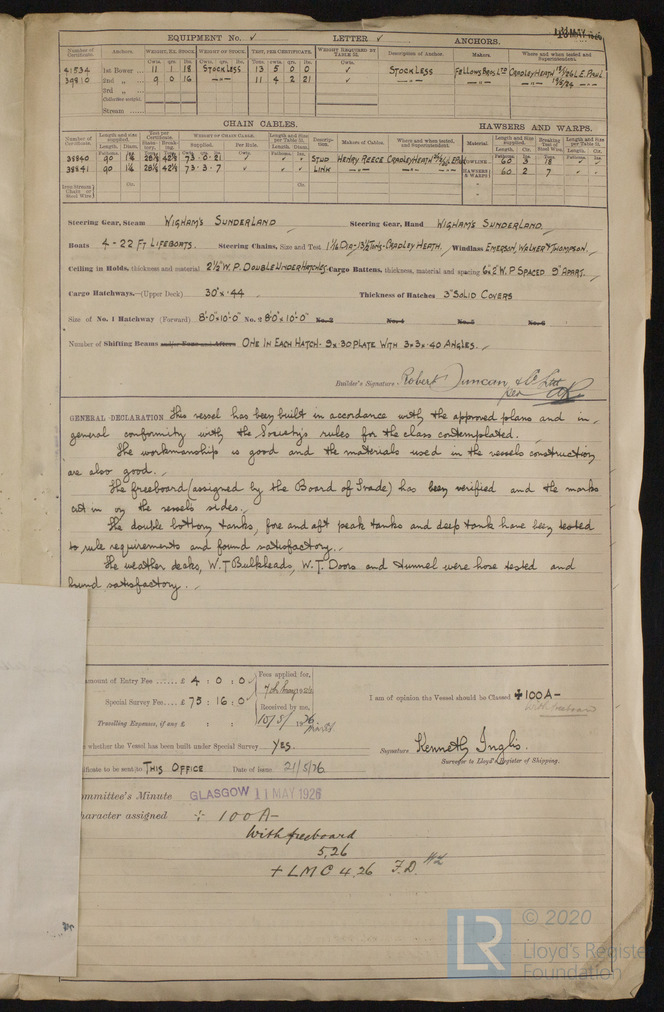 EQUIPMENT No. ✓ LETTER ✓ ANCHORS.
MAY 1926
Number of Certificate. Anchors. WEIGHT, EX. STOCK. WEIGHT OF STOCK. TEST, PER CERTIFICATE. WEIGHT REQUIRED BY TABLE 31. Description of Anchor. Makers. Where and when tested and Superintendent.
Cwts. qrs. lbs. Cwts. qrs. lbs. Tons. cwts. qrs. lbs. Cwts.
41534 1st Bower ... 11 1 18 STOCKLESS 13 5 0 0 ✓ STOCKLESS FELLOWS BROS. LTD CRADLEY HEATH L.E. PAUL
39810 2nd „ ... 9 0 16 11 4 2 21 ✓
3rd „ ...
Stream ......
CHAIN CABLES. HAWSERS AND WARPS.
Number of Certificate. Length and size supplied. Test per Certificate. WEIGHT OF CHAIN CABLE. Length and Size per Table 31. Description. Makers of Cables. Where and when tested, and Superintendent. Material Length and Size supplied. Breaking Test of Steel Wire. Length and Size per Table 31.
Length. Diam. Supplied. Per Rule. Length. Diam. Length. Cir. Length. Cir.
39840 90 73-0-21 ✓ STUD HENRY REECE CRADLEY HEATH 60 3 18
39841 90 73-3-7 ✓ LINK 60 2 7
Steering Gear, Steam WIGHAM'S SUNDERLAND Steering Gear, Hand WIGHAM'S SUNDERLAND.
Boats 4 - 22 FT LIFEBOATS. Steering Chains, Size and Test CRADLEY HEATH. Windlass EMERSON, WALKER & THOMPSON.
Ceiling in Holds, thickness and material 2½" W.P. DOUBLE UNDER HATCHES. Cargo Battens, thickness, material and spacing 6×2" W.P. SPACED 9" APART.
Cargo Hatchways.—(Upper Deck) 30" × ·44 Thickness of Hatches 3" SOLID COVERS
Size of No. 1 Hatchway (Forward) 8'-0"×10'-0" No. 2 8'-0"×10'-0" No. 3 No. 4 No. 5 No. 6
Number of Shifting Beams and/or Fore and Afters ONE IN EACH HATCH. 9×·30 PLATE WITH 3×3×·40 ANGLES.
Builder's Signature Robert Duncan & Co Ltd
GENERAL DECLARATION. This vessel has been built in accordance with the approved plans and in
general conformity with the Society's rules for the class contemplated.
The workmanship is good and the materials used in the vessels construction
are also good.
The freeboard (assigned by the Board of Trade) has been verified and the marks
cut in on the vessel's sides.
The double bottom tanks, fore and aft peak tanks and deep tank have been tested
to rule requirements and found satisfactory.
The weather decks, W.T Bulkheads, W.T. Doors and tunnel were hose tested and
found satisfactory.
amount of Entry Fee ...... £ 4 : 0 : 0
Special Survey Fee.... £ 75 : 16 : 0
Travelling Expenses, if any £ : :
Fees applied for,
7th May 1926
Received by me,
I am of opinion the Vessel should be Classed ✠ 100A-
With freeboard
whether the Vessel has been built under Special Survey... YES.
Signature Kenneth Inglis.
Surveyor to Lloyd's Register of Shipping.
ificate to be sent to THIS OFFICE Date of issue 21/5/26
mmittee's Minute GLASGOW 11 MAY 1926
haracter assigned ÷ 100A-
With freeboard
5,26
+ LMC 4,26 F.D.
LR © 2020
Lloyd's Register
Foundation